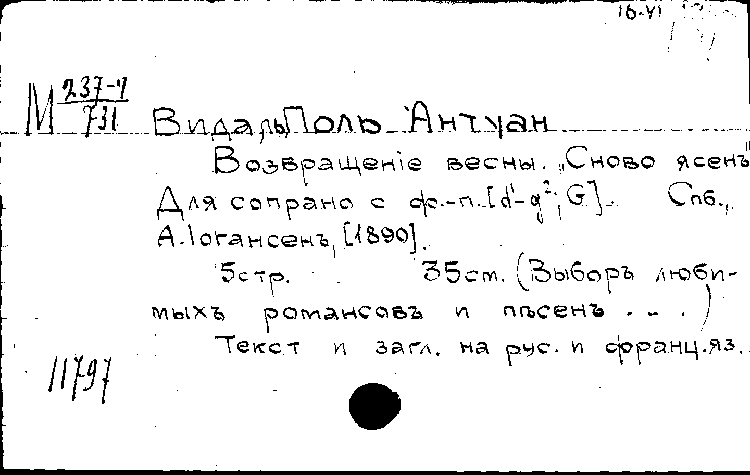 16.VI
М 237-4/731
Видаль, Поль Антуан
Возвращенiе весны. „Сново ясенъ
Для сопрано с ф.-п. [d¹-g²; G]. Спб.,
А. Iогансенъ, [1890].
5 стр. 35 см. (Выборъ люби-
мыхъ романсовъ и пѣсенъ . . . )
Текст и загл. на рус. и франц. яз.
11797